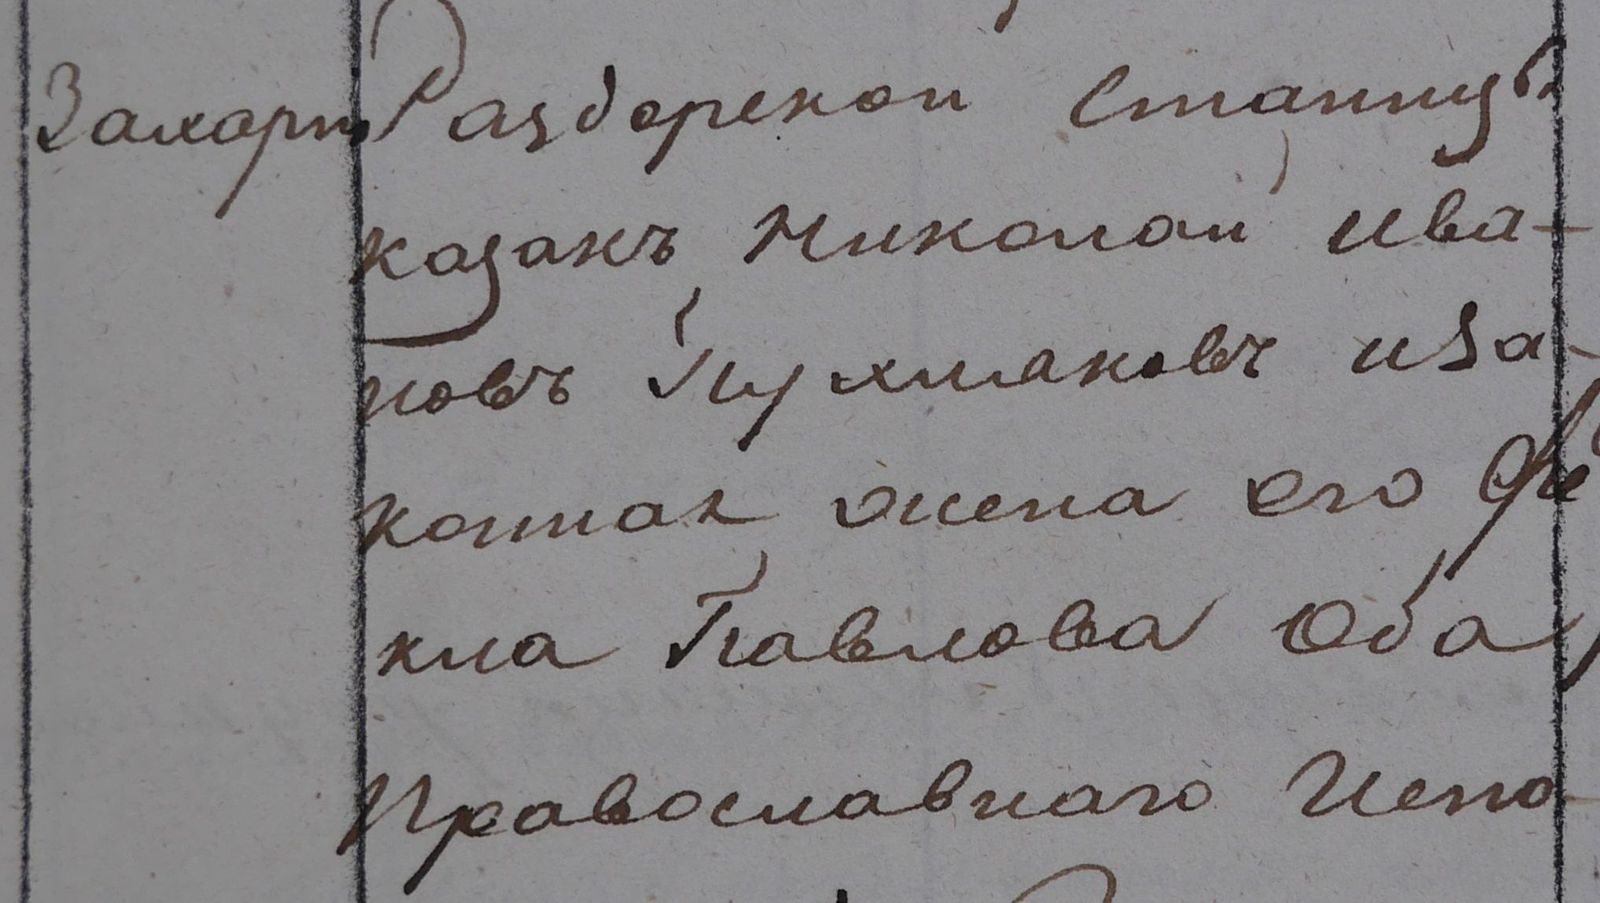 Захарiй Раздорской Станицы
казакъ Николай Ива-
новъ Пухляковъ иза-
конная жена его Фе
кла Павлова Оба
Православнаго Испо-